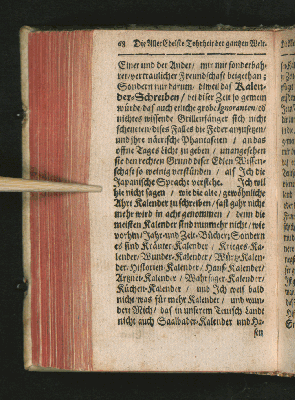 68 Die Aller Edelste Tohrheit der gantzen Welt.
Einer und der Ander / mir mit sonderbah-
rer vertraulicher Freundschaft beygethan;
Sondern nur darum / dieweil das Kalen-
der-Schreiben / bey diser Zeit so gemein
würde daß auch etliche grobe Ignoranten u.
nichtes wissende Grillenfänger sich nicht
scheueten dises Falls die Feder anzusetzen /
und ihre närrische Phantaseien / an das
offne Tages Licht zu geben / unangesehen
sie den rechten Grund diser Edlen Wissen-
schaft so wenig verstünden / als Ich die
Japanische Sprache verstehe. Ich will
hie nicht sagen / wie die alte / gewöhnliche
Ahrt Kalender zu schreiben / fast gahr nicht
mehr wird in acht genommen / denn die
meisten Kalender sind nunmehr nicht / wie
vorhin / Jahr- und Zeit-Bücher / Sondern
es sind Kräuter-Kalender / Krieges-Ka-
lender / Wunder-Kalender / Würtz-Kalen-
der / Historien-Kalender / Hauß-Kalender /
Artznei-Kalender / Wahrsager-Kalender /
Küchen-Kalender / und Ich weis bald
nicht / was für mehr Kalender / und wun-
dert Mich / das in unserem Teutsch Lande
nicht auch Saalbader-Kalender und Ha-
sen